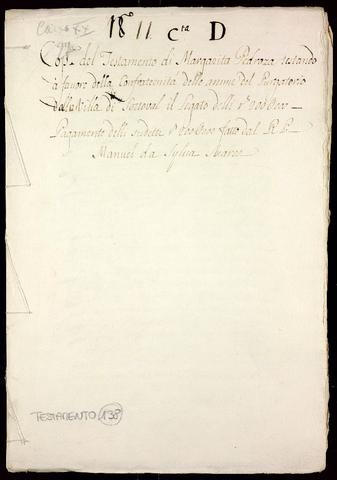 Caixa XX
18º 11 Cta D
Cop. del Testamento di Margarita Pedroza testando
à favore della Confraternità delle anime del Purgatorio
della Villa di il Legato delli
Pagamento delli sudetti fatto dal R. P.
Manuel da Sylva Soares
TESTAMENTO 138